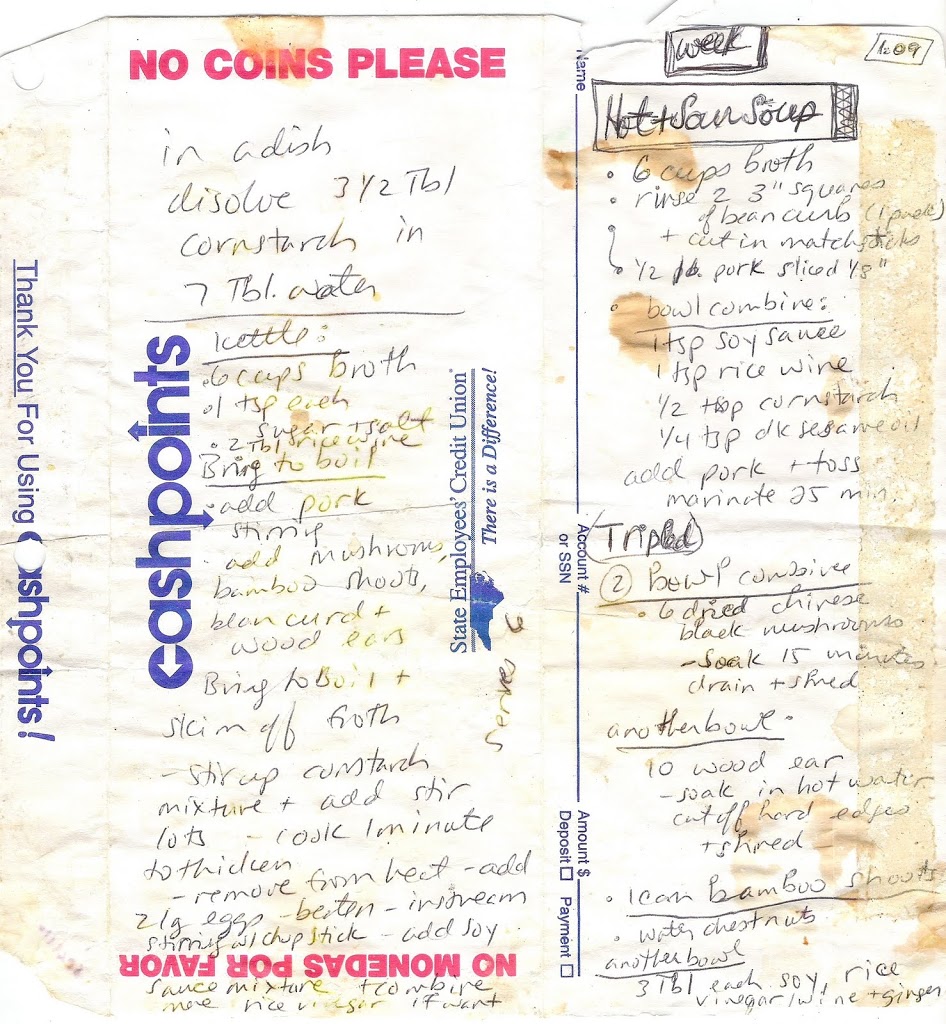 Thank You For Using Cashpoints!
NO COINS PLEASE
in a dish
disolve 3 1/2 Tbl
cornstarch in
7 Tbl. water
kettle:
• 6 cups broth
• 1 tsp each
sugar + salt
• 2 Tbl rice wine
Bring to boil
• add pork
stirring
• add mushrooms,
bamboo shoots,
bean curd +
wood ears
Bring to Boil +
skim off froth
- stir up cornstarch
mixture + add stir
lots - cook 1 minute
to thicken
- remove from heat - add
2 lg eggs - beaten - in stream
stirring w/ chopstick - add soy
sauce mixture + combine
more rice vinegar if want
NO MONEDAS POR FAVOR
cashpoints
State Employees' Credit Union®
There is a Difference!
serves 6
Name
Account #
or SSN
Amount $
Deposit □ Payment □
week
1.09
Hot + Sour Soup
• 6 cups broth
• rinse 2 3" squares
of bean curb (1 pack)
+ cut in matchsticks
• 1/2 lb. pork sliced 1/8"
• bowl combine:
1 tsp soy sauce
1 tsp rice wine
1/2 tsp cornstarch
1/4 tsp dk sesame oil
add pork + toss
marinate 25 min
Tripled
② bowl combine
• 6 dried chinese
black mushrooms
- soak 15 minutes
drain + shred
another bowl •
10 wood ear
- soak in hot water
cut off hard edges
+ shred -
• 1 can bamboo shoots
• water chestnuts
another bowl
3 Tbl each soy, rice
vinegar/wine + ginger